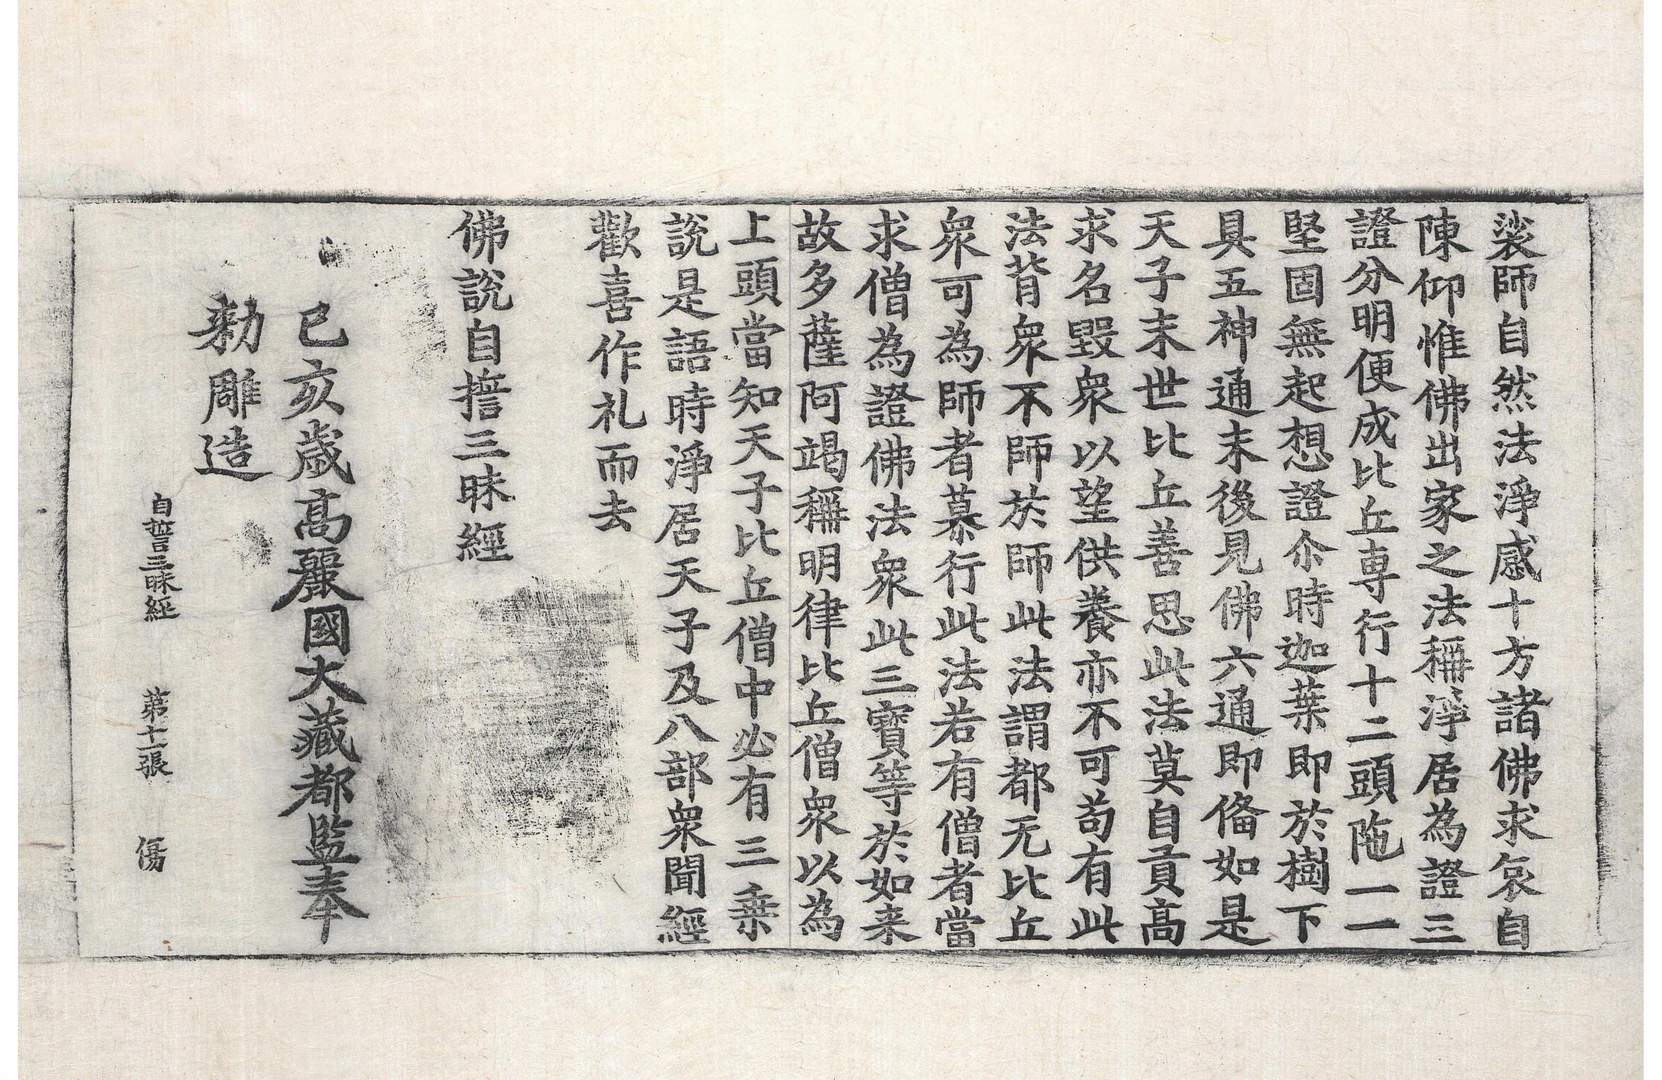 裟師自然法淨感十方諸佛求哀自
陳仰惟佛出家之法稱淨居為證三
證分明便成比丘専行十二頭陁一一
堅固無起想證尒時迦葉即於樹下
具五神通末後見佛六通即俻如是
天子末世比丘善思此法莫自貢髙
求名毀衆以望供養亦不可苟有此
法背衆不師於師此法謂都无比丘
衆可為師者慕行此法若有僧者當
求僧為證佛法衆此三寶等於如来
故多薩阿竭稱明律比丘僧衆以為
上頭當知天子比丘僧中必有三乗
說是語時淨居天子及八部衆聞經
歡喜作礼而去
佛說自誓三昧經
己亥歲髙麗國大藏都監奉
勑雕造
自誓三昧經 第十一張 傷